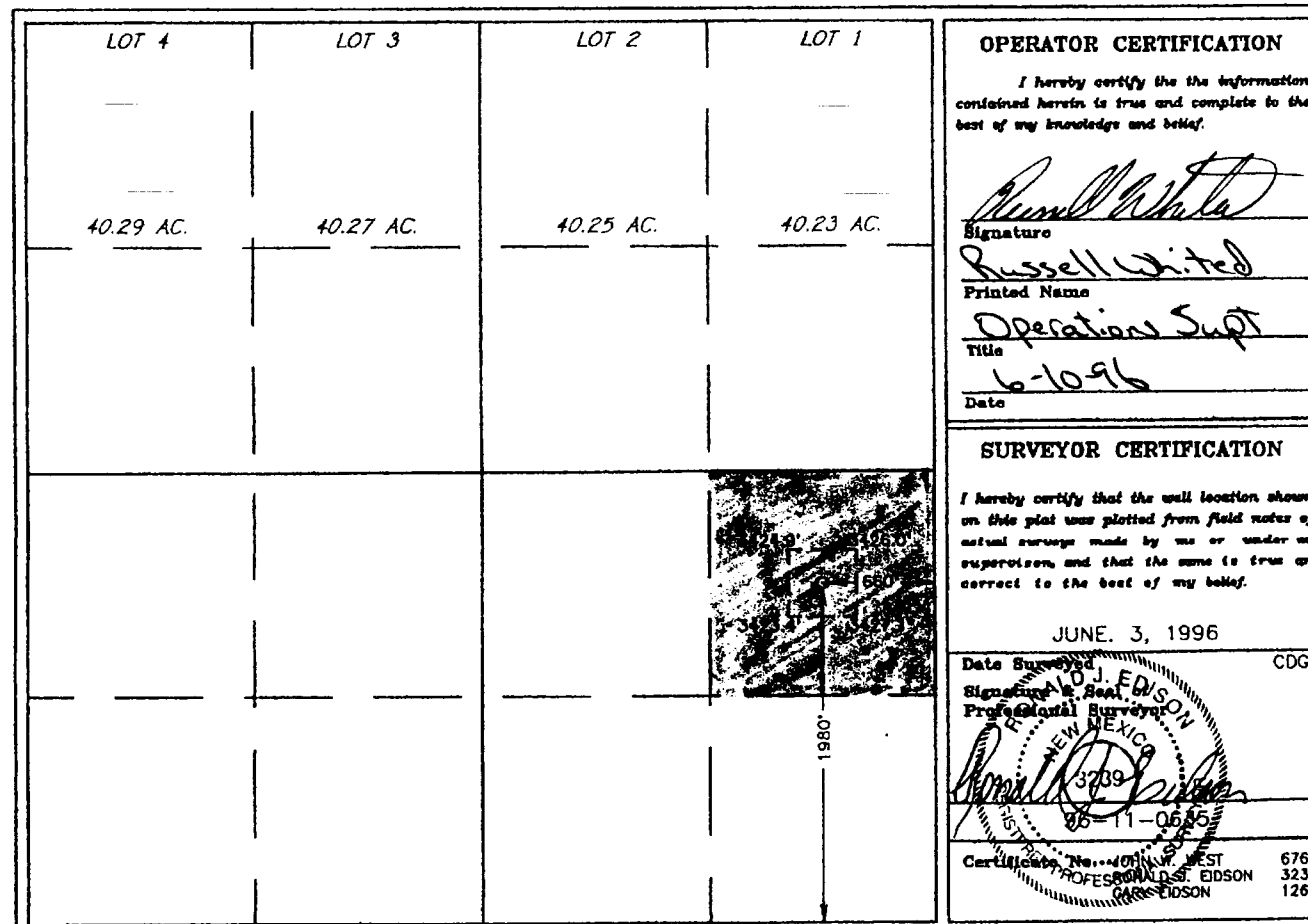 LOT 4 LOT 3 LOT 2 LOT 1
40.29 AC. 40.27 AC. 40.25 AC. 40.23 AC.
3426.0'
660'
1980'
OPERATOR CERTIFICATION
I hereby certify the the information
contained herein is true and complete to the
best of my knowledge and belief.
Signature
Russell Whited
Printed Name
Operation Supt
Title
6-10-96
Date
SURVEYOR CERTIFICATION
I hereby certify that the well location shown
on this plat was plotted from field notes of
actual surveys made by me or under
supervison, and that the same is true
correct to the best of my belief.
JUNE. 3, 1996
Date Surveyed CDG
Signature & Seal of
Professional Surveyor
RONALD J. EDISON
NEW MEXICO
3239
REGISTERED PROFESSIONAL SURVEYOR
96-11-0635
Certificate No. JOHN W. WEST 676
RONALD J. EIDSON 323
GARY EIDSON 126